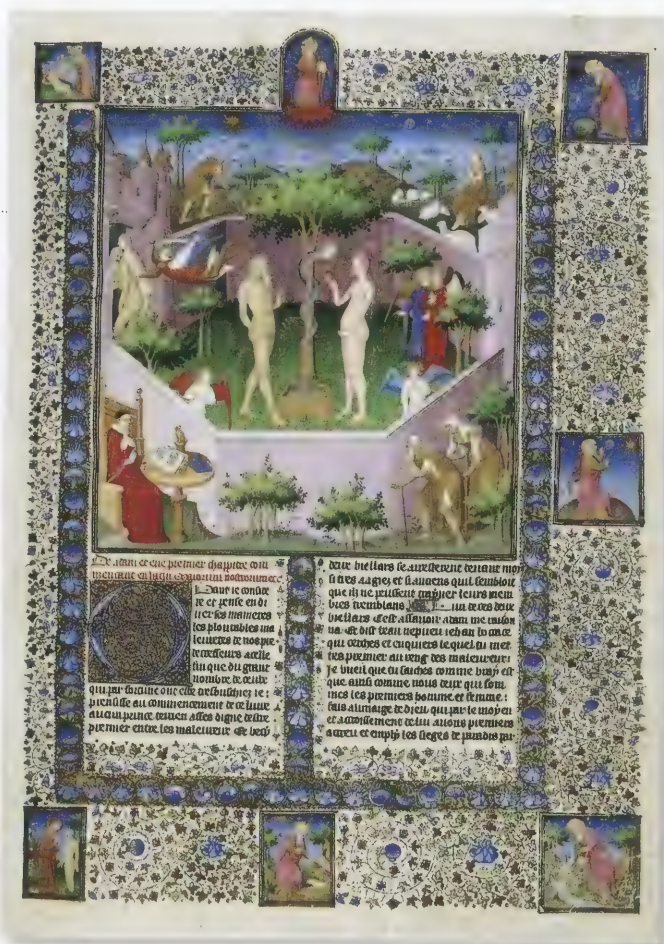 De adam et eue premier chappitre com
mencant en latin
Quant ie conside
re et pense en di
uerses manieres
les plourables ma
leuretes de nos pre
decesseurs a celle
fin que du grant
nombre de ceulx
qui par fortune ont este trebuschiez ie
prensisse au commencement de ce liure
aucun prince terrien asses digne destre
premier entre les maleureux Et vecy
deux viellars se aresterent deuant moy
si tres aagiez et si anciens quil sembloit
que ilz ne peussent trayner leurs mem
bres tremblans un de ces deux
viellars cest assauoir adam me raison
na et dist beau nepueu iehan bocace
qui cerches et enquiers lequel tu met
tes premier au reng des maleureux
Je vueil que tu saches comme vray est
que ainsi comme nous deux qui som
mes les premiers homme et femme
fais a limaige de dieu qui par le moyen
et accroissement de lui auons premiers
acreu et emply les sieges de paradis par